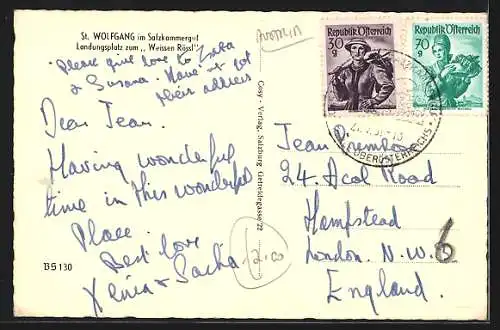 St. WOLFGANG im Salzkammergut
Landungsplatz zum „Weissen Rössl"
Please give love to Luba
& Susana. Have not got
their address
Dear Jean.
Having wonderful
time in this wonderful
Place.
Best love
Xenia & Sasha.
BS 130
Cosy-Verlag, Salzburg Getreidegasse 22
2.00
Republik Österreich
30 g
Republik Österreich
70 g
OBERÖSTERREICH
Jean
24. Acol Road
Hampstead
London. N.W.6
England.